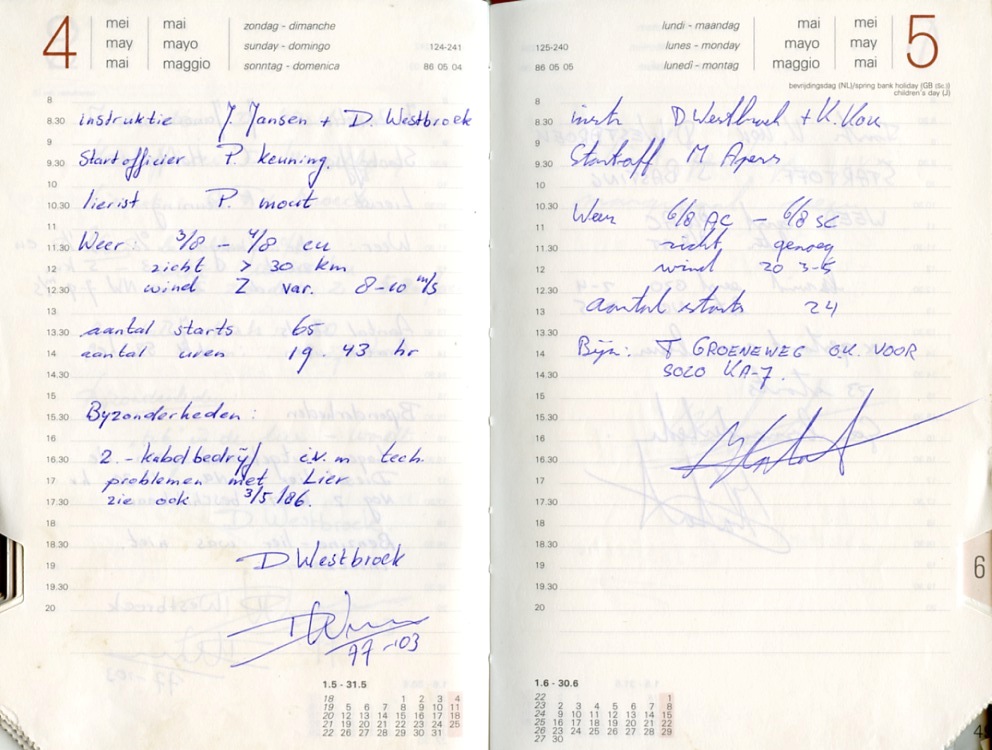 4
mei mai
may mayo
mai maggio
zondag - dimanche
sunday - domingo
sonntag - domenica
124-241
86 05 04
8
8.30 instruktie J. Jansen + D. Westbroek
9
9.30 Startofficier P. Keuning.
10
10.30 lierist P. mout
11
11.30 Weer: 3/8 - 4/8 cu
12 zicht > 30 km
12.30 wind Z var. 8-10 m/s
13
13.30 aantal starts 65
14 aantal uren 19.43 hr
14.30
15
15.30 Byzonderheden:
16
16.30 2.-kabelbedrijf i.v.m tech.
17 problemen met Lier
17.30 zie ook 3/5/86.
18
18.30 D Westbroek
19
19.30
20
77-103
1.5 - 31.5
18 1 2 3 4
19 5 6 7 8 9 10 11
20 12 13 14 15 16 17 18
21 19 20 21 22 23 24 25
22 26 27 28 29 30 31
125-240
86 05 05
lundi - maandag
lunes - monday
lunedi - montag
mai mei
mayo may
maggio mai
5
bevrijdingsdag (NL)/spring bank holiday (GB (Sc))
children's day (J)
8
8.30 instr D Westbroek + K. Kou
9
9.30 Startoff M Apers
10
10.30 Weer 6/8 AC - 6/8 SC
11
11.30 zicht genoeg
12 wind 20 3-5
12.30
13 aantal starts 24
13.30
14 Bijz: T GROENEWEG O.K. VOOR
14.30 SOLO KA-7.
15
15.30
16
16.30
17
17.30
18
18.30
19
19.30
20
6
1.6 - 30.6
22 1
23 2 3 4 5 6 7 8
24 9 10 11 12 13 14 15
25 16 17 18 19 20 21 22
26 23 24 25 26 27 28 29
27 30